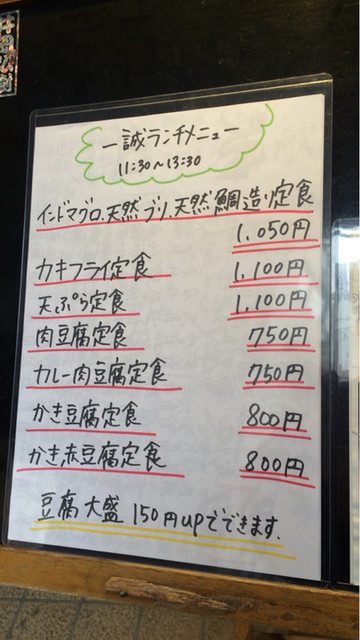 一誠ランチメニュー
11:30〜13:30
インドマグロ、天然ブリ、天然鯛造り定食
1,050円
カキフライ定食 1,100円
天ぷら定食 1,100円
肉豆腐定食 750円
カレー肉豆腐定食 750円
かき豆腐定食 800円
かき赤豆腐定食 800円
豆腐大盛 150円upでできます.